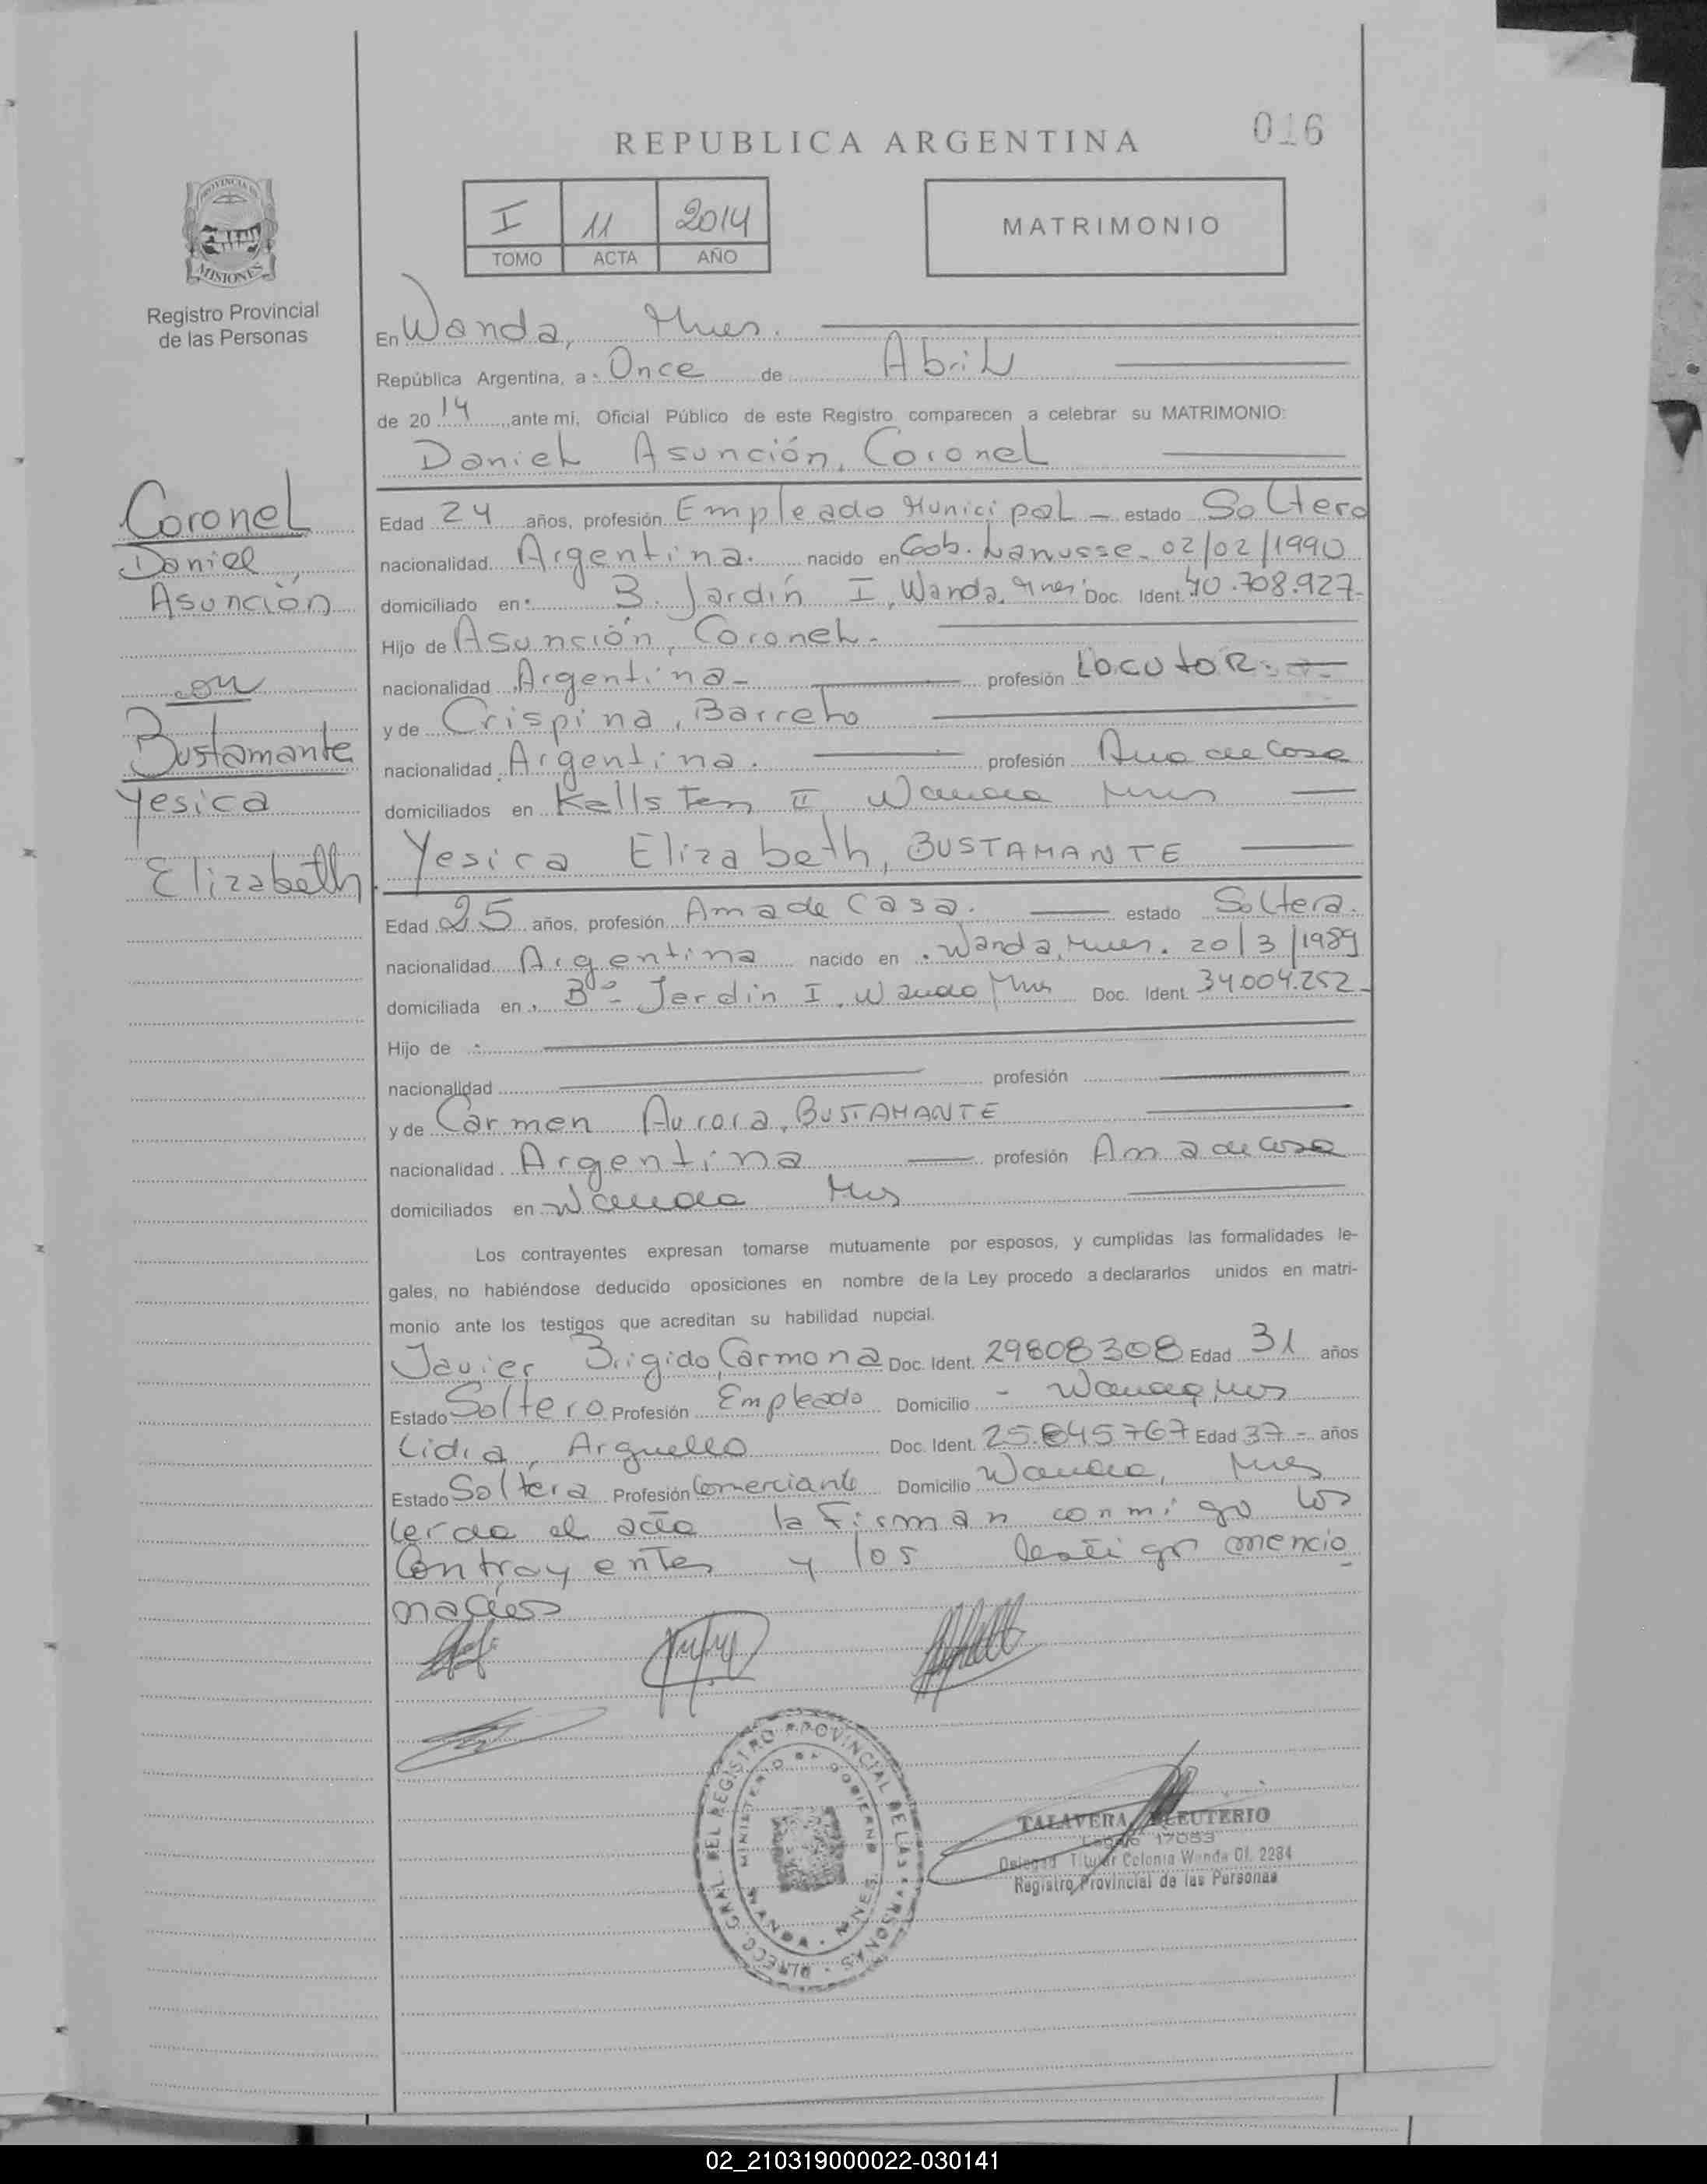 016
REPUBLICA ARGENTINA
I 11 2014
TOMO ACTA AÑO
MATRIMONIO
PROVINCIA DE
MISIONES
Registro Provincial
de las Personas
En Wanda, Mnes.
República Argentina, a Once de Abril
de 20 14 ante mi, Oficial Público de este Registro comparecen a celebrar su MATRIMONIO:
Daniel Asunción, Coronel
Coronel
Daniel
Asunción
con
Bustamante
Yesica
Elizabeth
Edad 24 años, profesión Empleado Municipal - estado Soltero
nacionalidad Argentina. nacido en Gob. Lanusse - 02/02/1990
domiciliado en B. Jardín I, Wanda, Mnes Doc. Ident. 40.708.927-
Hijo de Asunción, Coronel -
nacionalidad Argentina - profesión Locutor. -
y de Crispina, Barreto
nacionalidad Argentina. profesión Ama de Casa
domiciliados en Kellsten II Wanda Mnes
Yesica Elizabeth, BUSTAMANTE
Edad 25 años, profesión Ama de Casa. estado Soltera.
nacionalidad Argentina nacido en Wanda, Mnes. 20/3/1989
domiciliada en B° Jardin I, Wanda Mns Doc. Ident. 34.004.252-
Hijo de
nacionalidad profesión
y de Carmen Aurora, BUSTAMANTE
nacionalidad Argentina profesión Ama de casa
domiciliados en Wanda Mns
Los contrayentes expresan tomarse mutuamente por esposos, y cumplidas las formalidades le-
gales, no habiéndose deducido oposiciones en nombre de la Ley procedo a declararlos unidos en matri-
monio ante los testigos que acreditan su habilidad nupcial.
Javier Brigido, Carmona Doc. Ident. 29808308 Edad 31 años
Estado Soltero Profesión Empleado Domicilio - Wanda, Mns
Lidia, Arguello Doc. Ident. 25.845767 Edad 37 - años
Estado Soltera Profesión Comerciante Domicilio Wanda, Mnes
Leida el acta la firman conmigo los
Contrayentes y los testigos mencio
nados
DIRECC. GRAL. DEL REGISTRO PROVINCIAL DE LAS PERSONAS
MINISTERIO DE GOBIERNO
WANDA - MNES.
TALAVERA, ELEUTERIO
Legajo 17053
Delegad Titular Colonia Wanda Of. 2284
Registro Provincial de las Personas
02_210319000022-030141